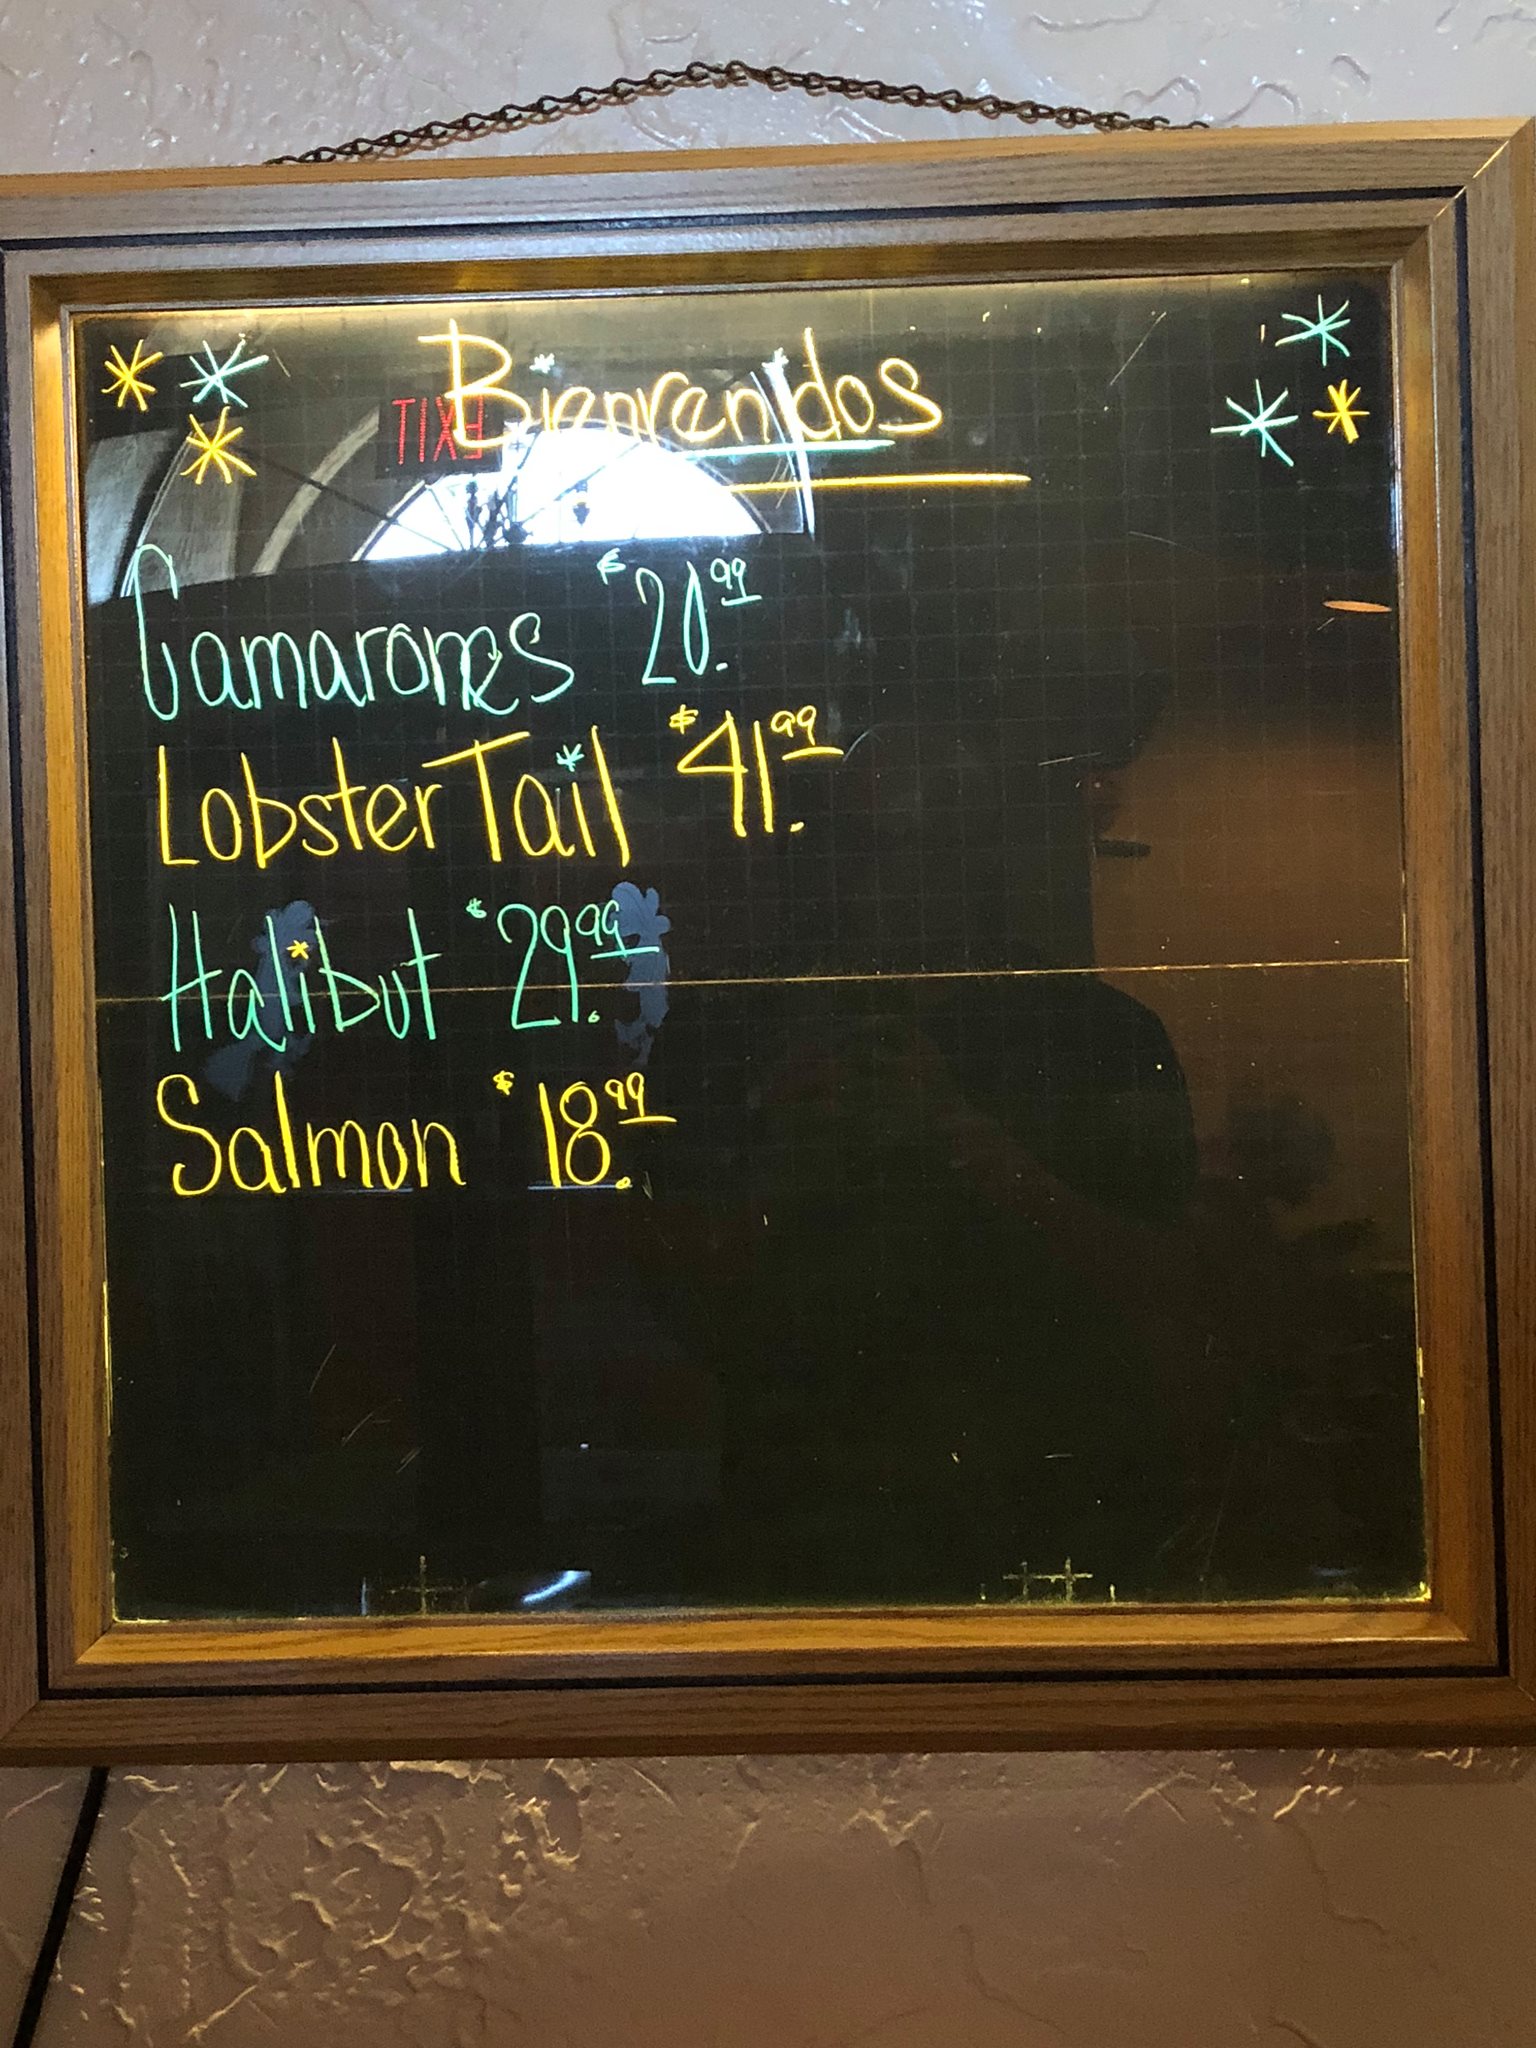 Bienvenidos
EXIT
Camarones $20.99
Lobster Tail $41.99
Halibut $29.99
Salmon $18.99